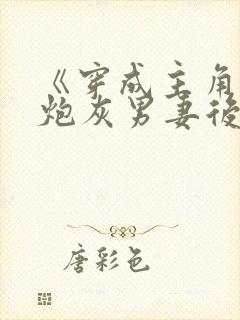 《穿成主角
炮灰男妻後
唐彩色